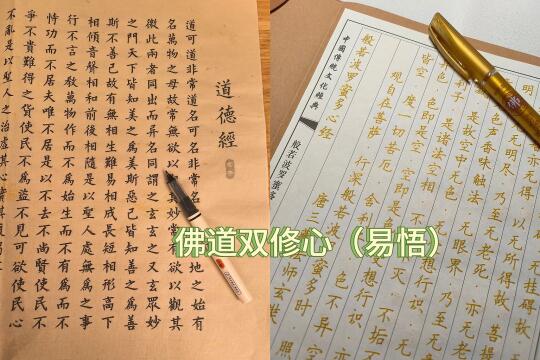 道德經
道可道非常道名可名非常名
地之始有
名萬物之母故常無欲以
妙常有欲以觀其
徼此兩者同出而异名同謂之玄玄之又玄眾妙
之門天下皆知美之為美斯惡已皆知善之為善
斯不善已故有無相生難易相成長短相形高下
相傾音聲相和前後相隨是以聖人處無為之事
行不言之教萬物作而不為始生而不有為而不
恃功而不居夫唯不居是以不去不尚賢使民不
爭不貴難得之貨使民不為盜不見可欲使民心
不亂是以聖人之治虛其心實其腹
中國傳統文化經典
般若波羅蜜多
般若波罗蜜多心经
唐三
法师玄奘
观自在菩萨·行深般若
蜜多时·照
皆空·度一切苦厄·舍利
异空
色即是空·空即是色
想行识
利子·是诸法空相·不
灭·不垢
是故空中无色
想行识·无
色声香味触法·无眼界·乃至
无明尽·乃至无老死·亦无老
以无所得故·菩提
佛道双修心（易悟）